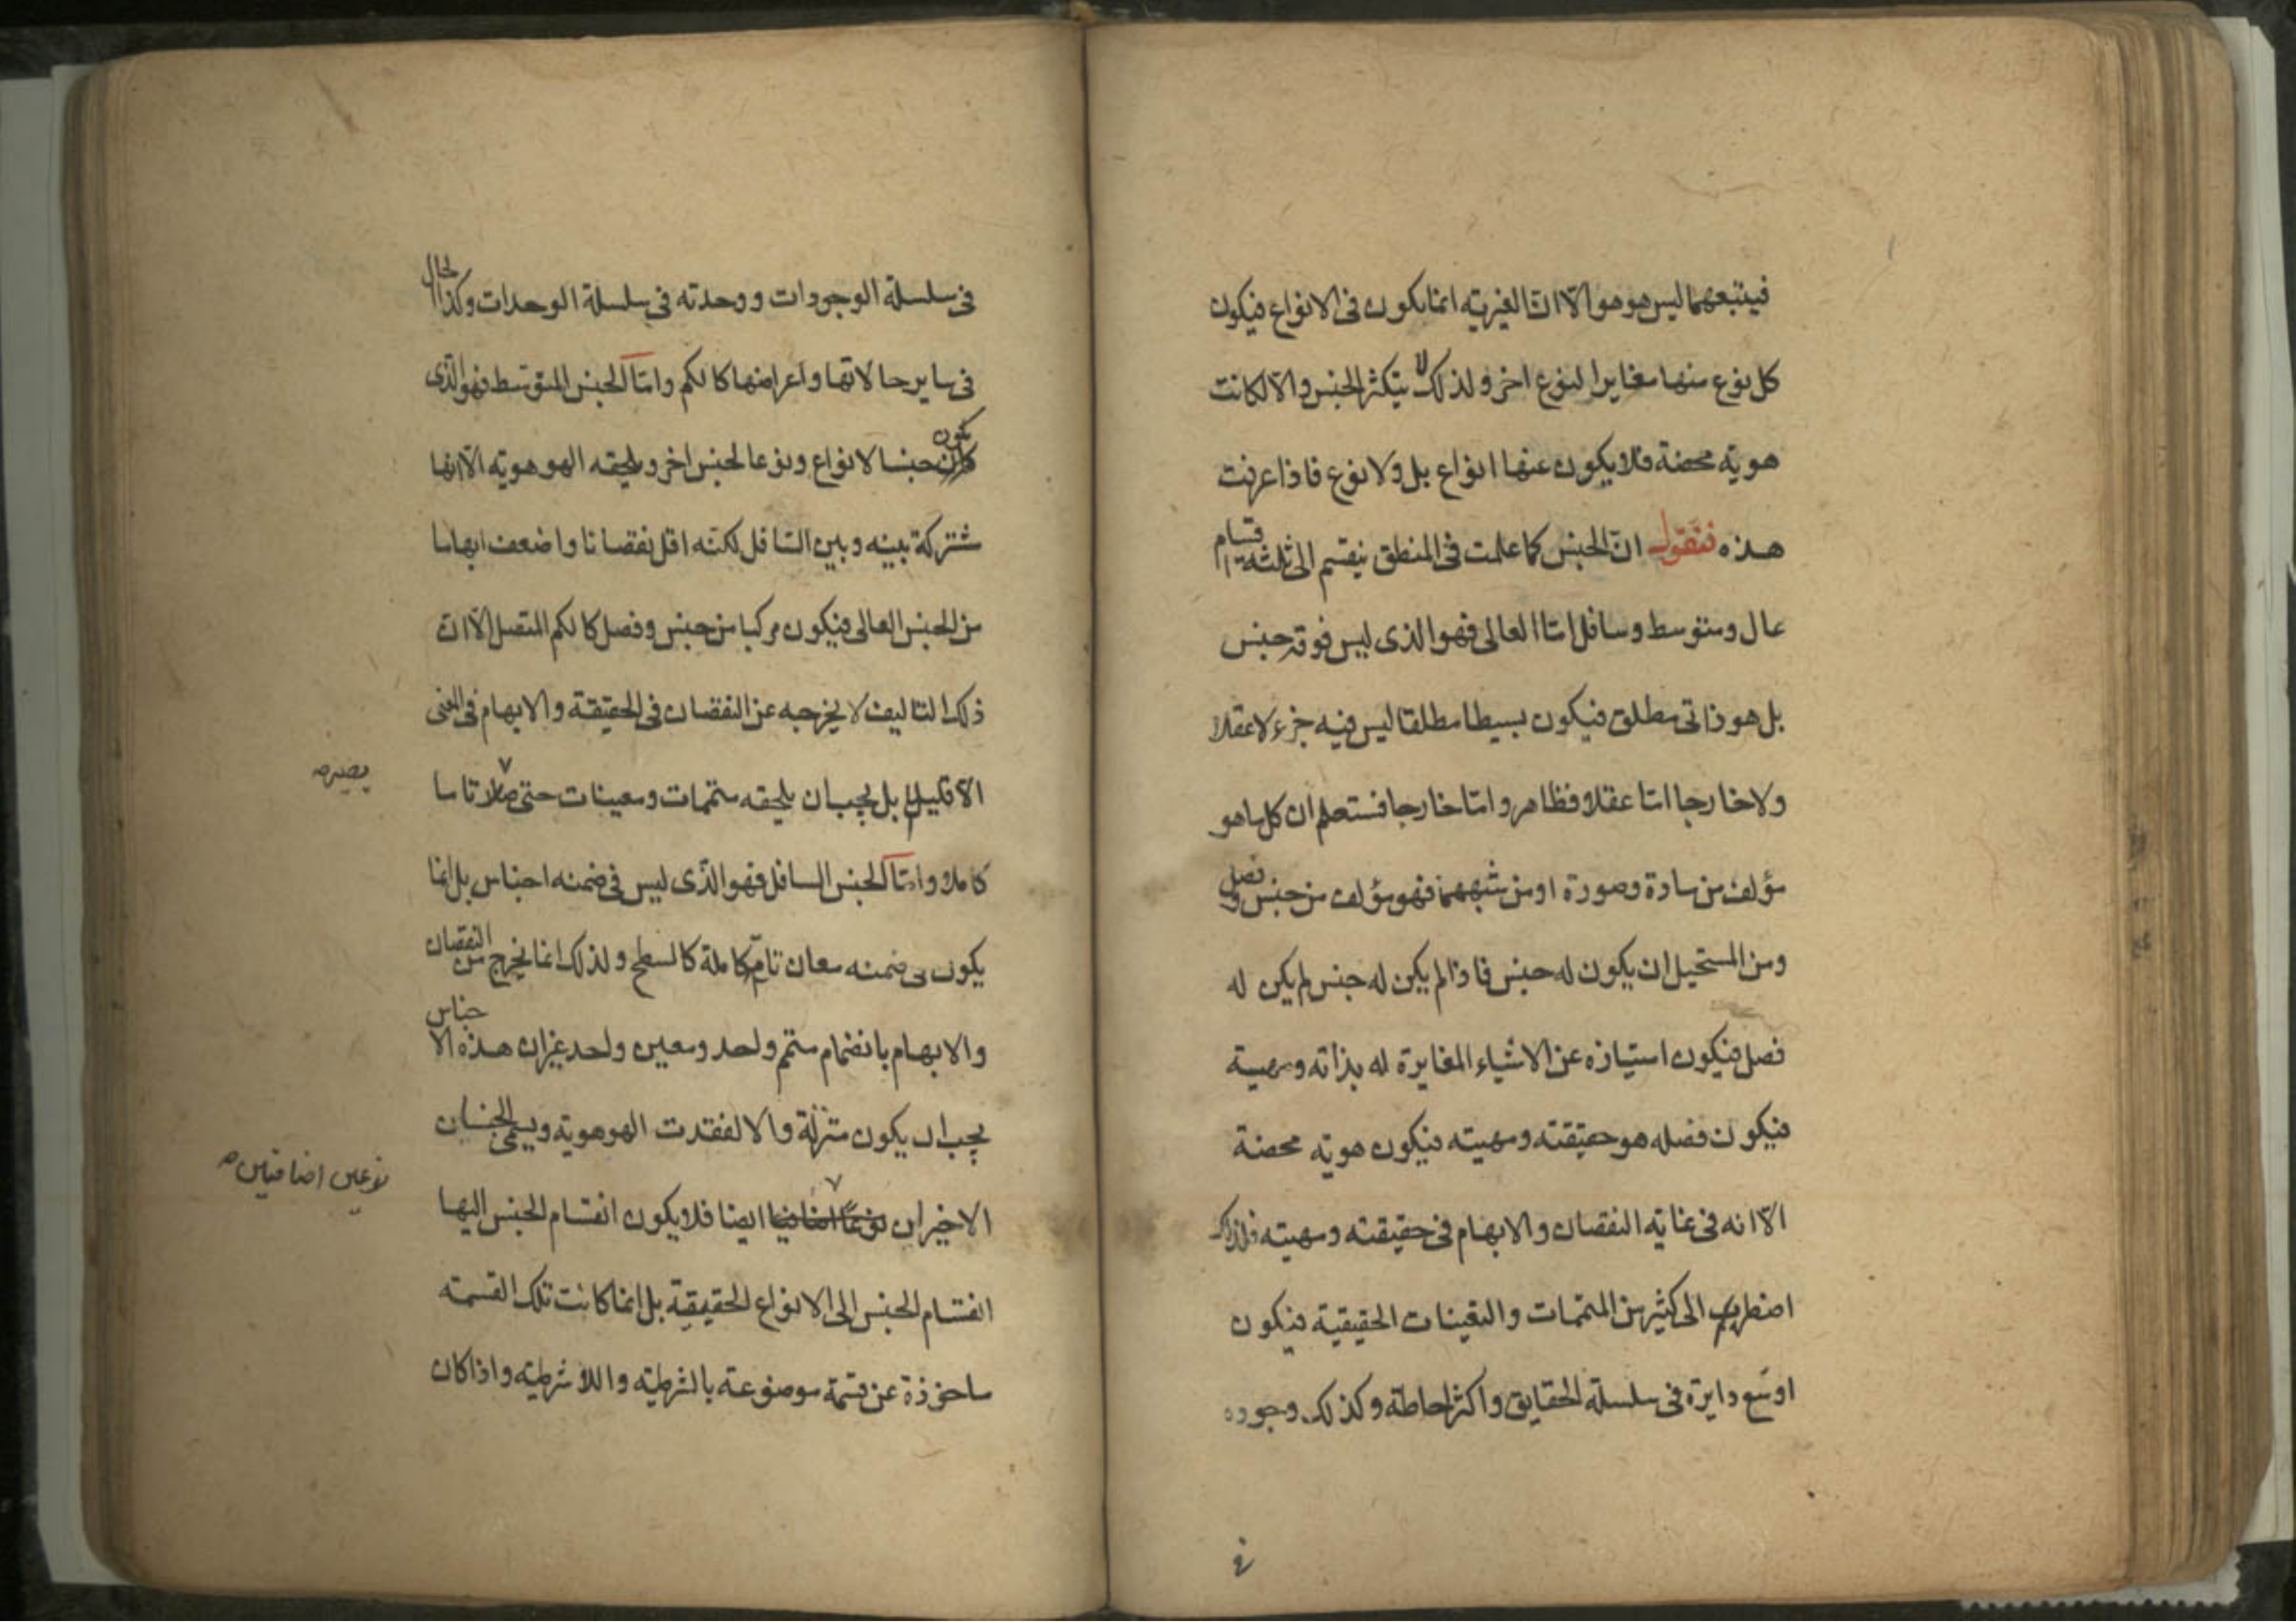 فيتبعهما ليس هو هو الّا انّ الغيريّه انما يكون فى الانواع فيكون
كل نوع منها مغايرا لنوع اخر و لذلك لا يتكثر الجنس و الّا لكانت
هوية محضة فلا يكون عنها انواع بل و لا نوع فاذا عرفت
هذه فنقول انّ الجنس كما علمت فى المنطق ينقسم الى ثلثة اقسام
عال و متوسط و سافل امّا العالى فهو الذى ليس فوقه جنس
بل هو ذاتى مطلق فيكون بسيطا مطلقا ليس فيه جزء لا عقلا
و لا خارجا امّا عقلا فظاهر و امّا خارجا فستعلم ان كل ما هو
مؤلف من مادة و صورة او من شبههما فهو مؤلف من جنس و فصل
و من المستحيل ان يكون له جنس فاذا لم يكن له جنس لم يكن له
فصل فيكون امتيازه عن الاشياء المغايرة له بذاته و مهيته
فيكون فصله هو حقيقته و مهيته فيكون هويّة محضة
الّا انه فى غاية النقصان و الابهام فى حقيقته و مهيته فلذلك
اضطر الى كثير من المتممات و التعينات الحقيقية فيكون
اوسع دايرة فى سلسلة الحقايق و اكثر احاطة و كذلك وجوده
فى
فى سلسلة الوجودات و وحدته فى سلسلة الوحدات و كذا الحال
فى ساير حالاتها و اعراضها كالكم و امّا الجنس المتوسط فهو الذى
يكون جنسا لانواع و نوعا لجنس اخر و يلحقه الهو هويّه الّا انها
مشتركة بينه و بين السّافل لكنّه اقل نقصانا و اضعف ابهاما
من الجنس العالى فيكون مركبا من جنس و فصل كالكم المتصل الّا انّ
ذلك التاليف لا يخرجه عن النقصان فى الحقيقة و الابهام فى المعنى
الّا قليلا بل يجب ان يلحقه متممات و معينات حتى تاما
يصير صح
كاملا و امّا الجنس السافل فهو الّذى ليس فى ضمنه اجناس بل انما
يكون فى ضمنه معان تامّة كاملة كالسطح و لذلك انما يخرج من النقصان
و الابهام بانضمام متمم واحد و معين واحد غير ان هذه الاجناس
يجب ان يكون متنزلة و الا لفقدت الهو هوية و يسمى الجنسان
نوعين اضافيين صح
الاخيران نوعًا اضافيا ايضا فلا يكون انقسام الجنس اليها
انقسام الجنس الى الانواع الحقيقيّة بل انما كانت تلك القسمه
ماخوذة عن قسمة موضوعة بالشرطيّه و اللا شرطيّه و اذا كان